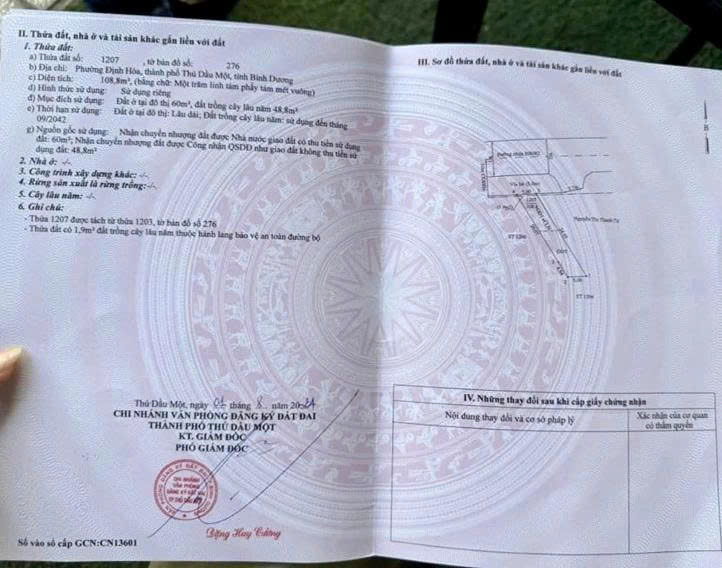 II. Thửa đất, nhà ở và tài sản khác gắn liền với đất
1. Thửa đất:
a) Thửa đất số: 1207 , tờ bản đồ số: 276
b) Địa chỉ: Phường Định Hòa, thành phố Thủ Dầu Một, tỉnh Bình Dương
c) Diện tích: 108,8m², (bằng chữ: Một trăm linh tám phẩy tám mét vuông)
d) Hình thức sử dụng: Sử dụng riêng
đ) Mục đích sử dụng: Đất ở tại đô thị 60m², đất trồng cây lâu năm 48,8m²
e) Thời hạn sử dụng: Đất ở tại đô thị: Lâu dài; Đất trồng cây lâu năm: sử dụng đến tháng
09/2042
g) Nguồn gốc sử dụng: Nhận chuyển nhượng đất được Nhà nước giao đất có thu tiền sử dụng
đất: 60m²; Nhận chuyển nhượng đất được Công nhận QSDĐ như giao đất không thu tiền sử
dụng đất: 48,8m²
2. Nhà ở: -/-
3. Công trình xây dựng khác: -/-
4. Rừng sản xuất là rừng trồng: -/-
5. Cây lâu năm: -/-
6. Ghi chú:
- Thửa 1207 được tách từ thửa 1203, tờ bản đồ số 276
- Thửa đất có 1,9m² đất trồng cây lâu năm thuộc hành lang bảo vệ an toàn đường bộ
Thủ Dầu Một, ngày tháng 8 năm 2024
CHI NHÁNH VĂN PHÒNG ĐĂNG KÝ ĐẤT ĐAI
THÀNH PHỐ THỦ DẦU MỘT
KT. GIÁM ĐỐC
PHÓ GIÁM ĐỐC
CHI NHÁNH
VĂN PHÒNG
ĐĂNG KÝ ĐẤT ĐAI
Đặng Huy Cường
Số vào sổ cấp GCN:CN13601
III. Sơ đồ thửa đất, nhà ở và tài sản khác gắn liền với đất
B
Nguyễn Thị Thanh
IV. Những thay đổi sau khi cấp giấy chứng nhận
Nội dung thay đổi và cơ sở pháp lý
Xác nhận của cơ quan
có thẩm quyền